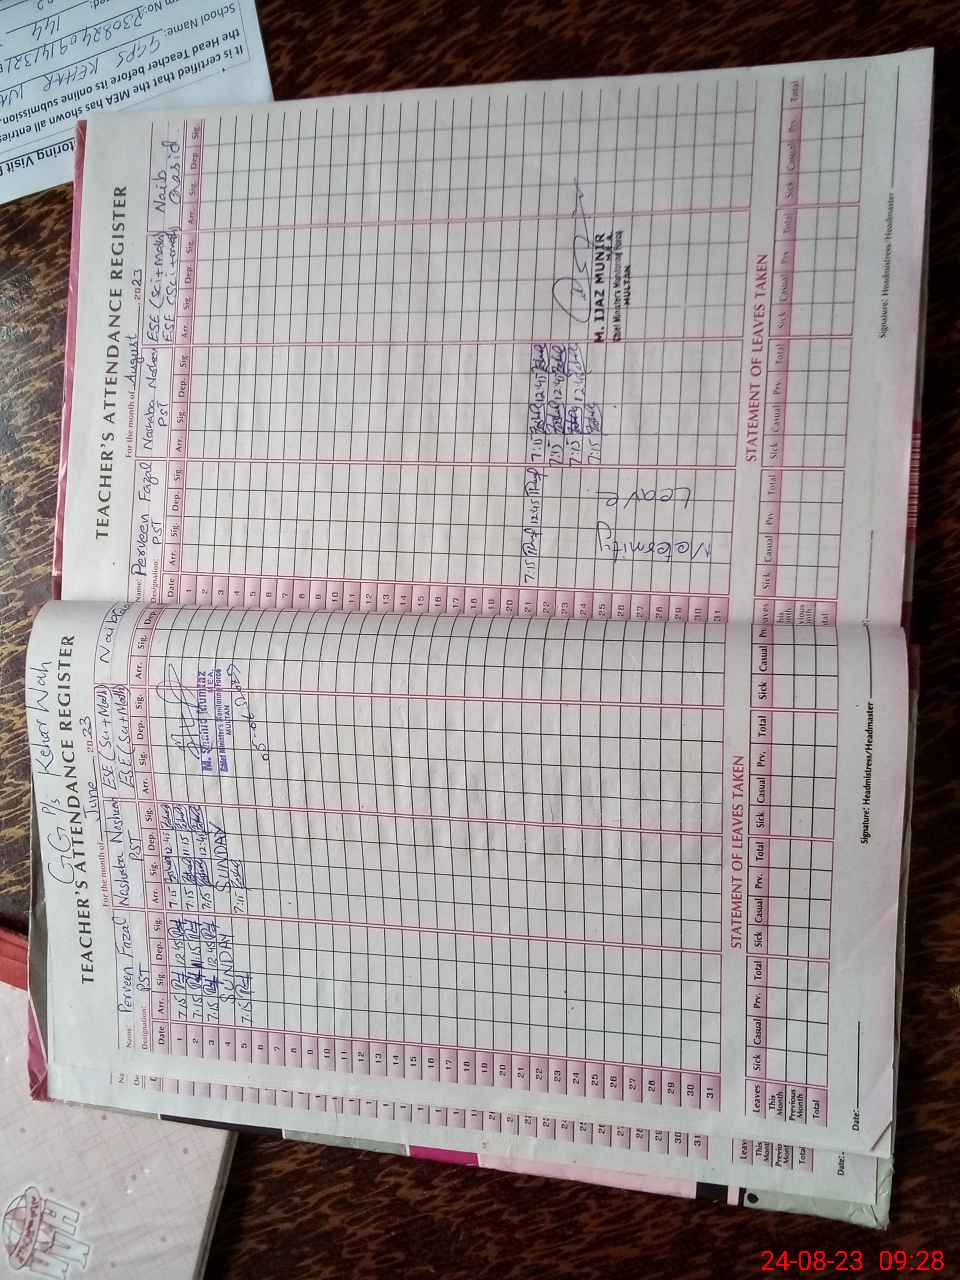 GG P/S Kehar Wah
TEACHER'S ATTENDANCE REGISTER
For the month of June 2023
Name: Perveen Fazal Nashaba Nosheen ESE (Sci+Math) Naib
Designation: PST PST ESE (Sci+Math)
Date Arr. Sig. Dep. Sig. Arr. Sig. Dep. Sig. Arr. Sig. Dep. Sig. Arr. Sig. Dep.
1 7:15 12:45 7:15 12:45
2 7:15 11:15 7:15 11:15
3 7:15 12:45 7:15 12:45
M. Shahid Mumtaz
M.E.A.
Chief Minister's Monitoring Force
MULTAN
4 SUNDAY SUNDAY
5 7:15 7:15
05-06-2023
6
7
8
9
10
11
12
13
14
15
16
17
18
19
20
21
22
23
24
25
26
27
28
29
30
31
STATEMENT OF LEAVES TAKEN
Leaves Sick Casual Prv. Total Sick Casual Prv. Total Sick Casual Prv. Total Sick Casual Prv.
This Month
Previous Month
Total
Date: Signature: Headmistress/Headmaster
TEACHER'S ATTENDANCE REGISTER
For the month of August 2023
Name: Perveen Fazal Nashaba Nosheen ESE (Sci+Math) Naib
Designation: PST PST ESE (Sci+Math) Qasid
Date Arr. Sig. Dep. Sig. Arr. Sig. Dep. Sig. Arr. Sig. Dep. Sig. Arr. Sig. Dep. Sig.
1
2
3
4
5
6
7
8
9
10
11
12
13
14
15
16
17
18
19
20
21 7:15 12:45 7:15 12:45
22 7:15 12:45
23 7:15 12:45
24 7:15
25
26
27
28
29
30
31
Maternity Leave
M. IJAZ MUNIR
M.E.A.
Chief Minister's Monitoring Force
MULTAN
STATEMENT OF LEAVES TAKEN
Leaves Sick Casual Prv. Total Sick Casual Prv. Total Sick Casual Prv. Total Sick Casual Prv. Total
Total
Signature: Headmistress/Headmaster
toring Visit
It is certified that the MEA has shown all entries
the Head Teacher before its online submission.
School Name: GGPS KEHAR WA
24-08-23 09:28